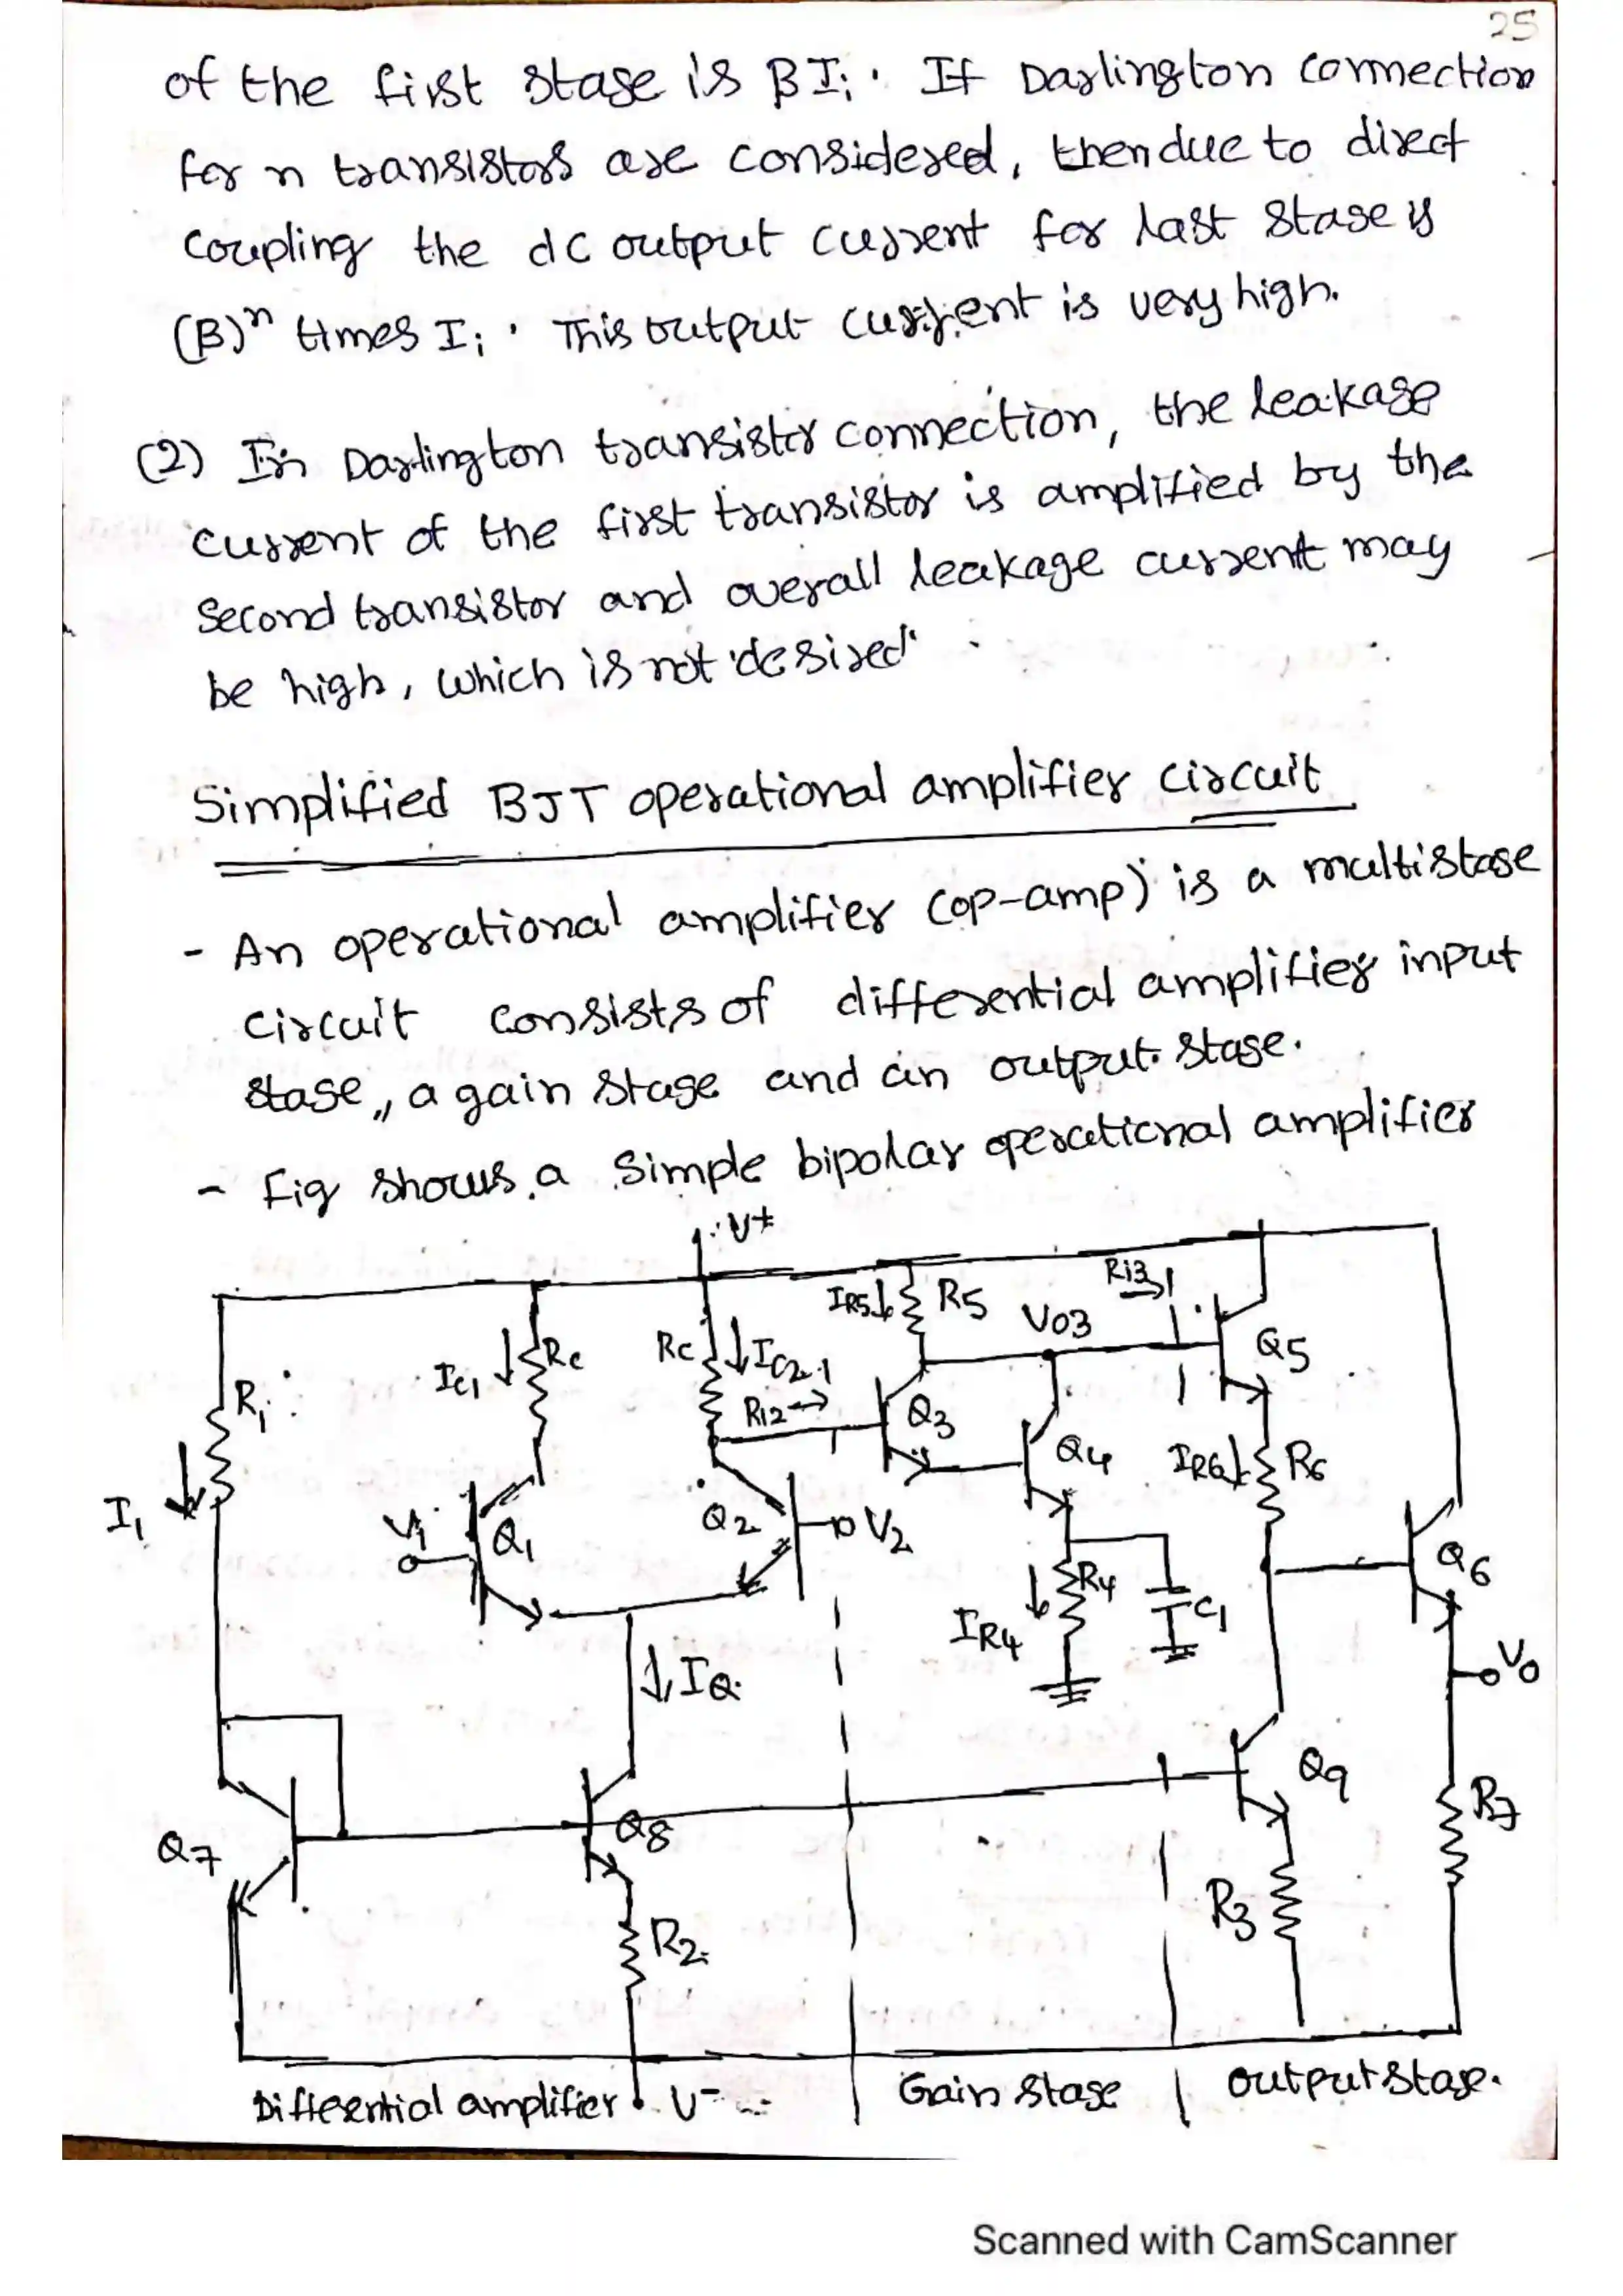 25
of the first stage is βIi. If Darlington connection
for n transistors are considered, then due to direct
coupling the dc output current for last stage is
(β)ⁿ times Ii. This output current is very high.
(2) In Darlington transistor connection, the leakage
current of the first transistor is amplified by the
second transistor and overall leakage current may
be high, which is not desired.
Simplified BJT operational amplifier circuit
- An operational amplifier (op-amp) is a multistage
circuit consists of differential amplifier input
stage, a gain stage and an output stage.
- Fig shows a simple bipolar operational amplifier
V+
Ri3
IR5 R5
V03
Rc
Rc IC2
IC1
R1
Ri2
Q3
Q5
Q4
IR6 R6
I1
V1
Q1
Q2
V2
Q6
R4
C1
IR4
IQ
V0
Q9
R7
Q8
Q7
R3
R2
Differential amplifier V- Gain stage Output stage.
Scanned with CamScanner